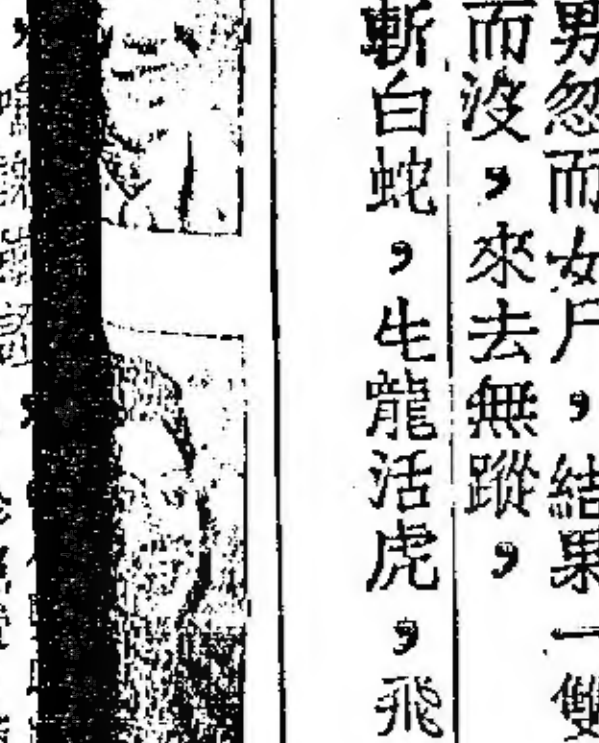 男忽而女尸，結果一雙
而沒，來去無蹤，
斬白蛇，生龍活虎，飛